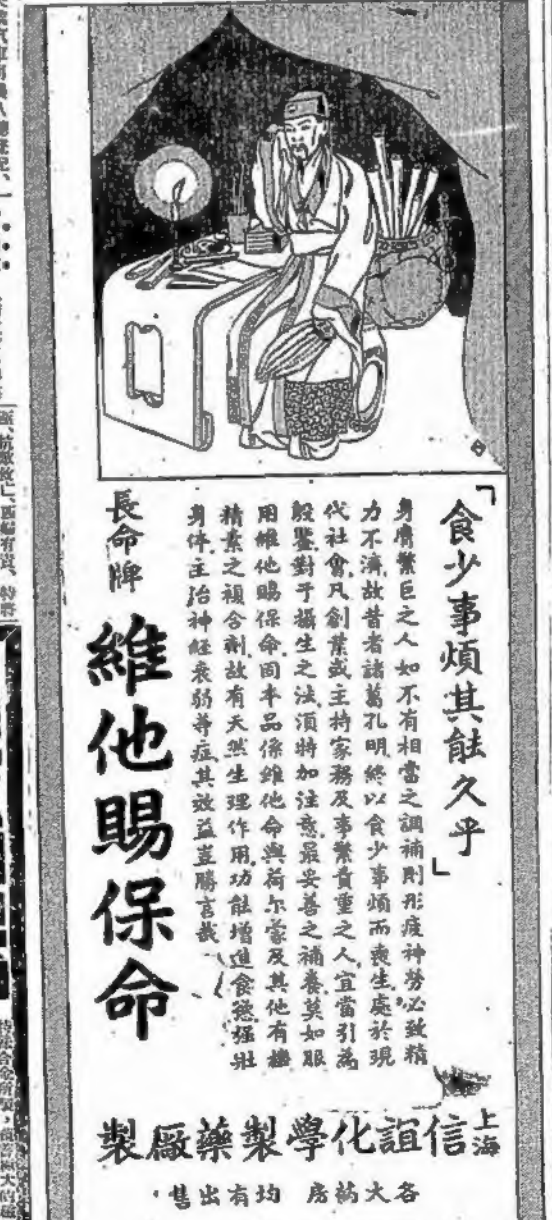 「食少事煩其能久乎」
身膺繁巨之人如不有相當之調補則形疲神勞必致精
力不濟.故昔者諸葛孔明.終以食少事煩而喪生.處於現
代社會.凡創業或主持家務及事繁責重之人.宜當引為
殷鑒.對于攝生之法.須特加注意.最妥善之補養.莫如服
用維他賜保命.因本品係維他命與荷尔蒙及其他有機
精素之複合劑.故有天然生理作用.功能增進食慾.强壯
身体.主治神経衰弱等症.其效益豈勝言哉
長命牌
維他賜保命
上海
信誼化學製藥厰製
各大葯房 均有出售